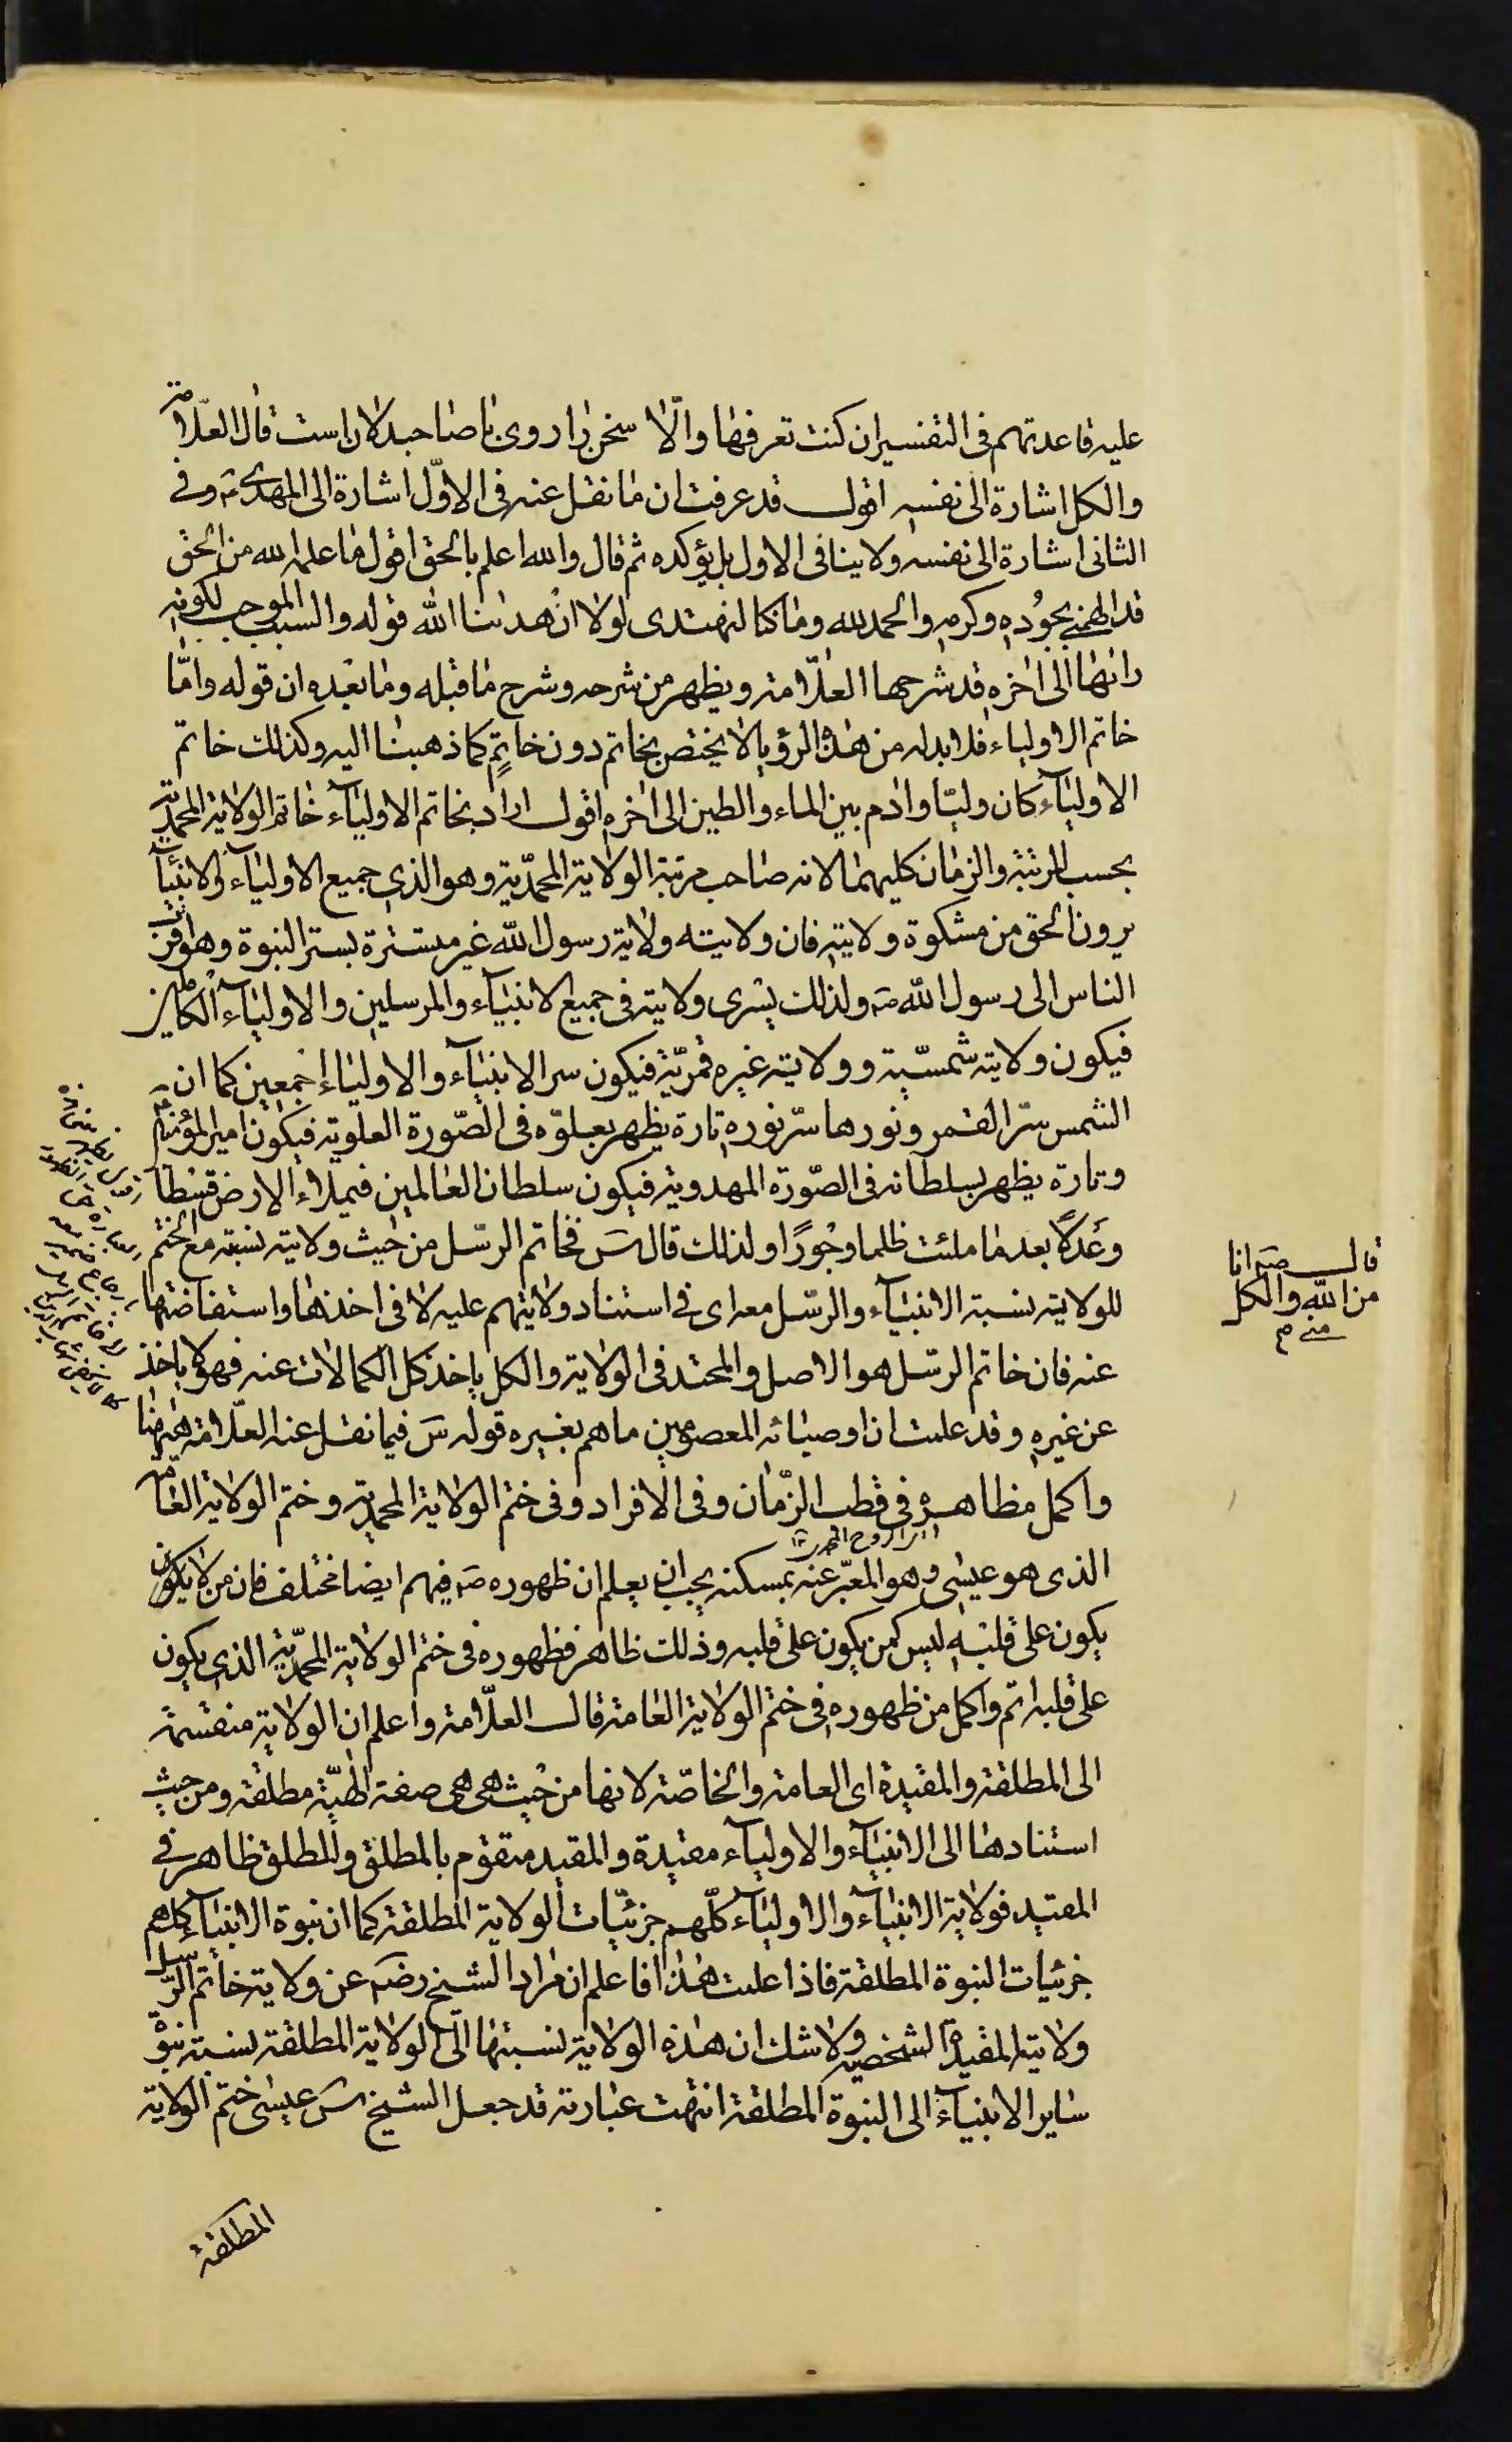 عليه قاعدتهم فى التفسير ان كنت تعرفها والّا سخن را روى با صاحبدلان است قال العلّامة
والكل اشارة الى نفسه اقول قد عرفت ان ما نقل عنه فى الاوّل اشارة الى المهدى وفى
الثانى اشارة الى نفسه ولا ينافى الاول بل يؤكده ثم قال والله اعلم بالحق اقول ما علمه الله من الحق
قد الهمنى بجُوده وكرمه والحمد لله وما كنا لنهتدى لولا ان هدىنا الله قوله والسبب الموجب لكونه
رائها الى اخره قد شرحها العلّامة ويظهر من شرحه وشرح ما قبله وما بعده ان قوله وامّا
خاتم الاولياء فلا بد له من هذه الرؤيا لا يختص بخاتم دون خاتمٍ كما ذهبنا اليه وكذلك خاتم
الاولياء كان وليّا وادم بين الماء والطين الى اخره اقول اراد بخاتم الاولياء خاتم الولاية المحمّديّة
بحسب المرتبة والزمان كليهما لانه صاحب مرتبة الولاية المحمّدية وهو الذى جميع الاولياء والانبياء
يرون الحق من مشكوة ولايته فان ولايته ولاية رسول الله غير مستترة بستر النبوة وهو اقرب
الناس الى رسول الله ص ولذلك يسرى ولايته فى جميع الانبياء والمرسلين والاولياء الكاملين
فيكون ولايته شمسيّة وولاية غيره قمريّة فيكون سر الانبياء والاولياء اجمعين كما ان
الشمس سرّ القمر ونورها سرّ نوره تارة يظهر بعلوّه فى الصّورة العلوية فيكون امير المؤمنين
وتارة يظهر بسلطانه فى الصّورة المهدوية فيكون سلطان العالمين فيملاء الارض قسطا
وعَدلًا بعد ما ملئت ظلما وجُورًا ولذلك قال س فخاتم الرسل من حيث ولايته نسبته مع الختم
للولاية نسبة الانبياء والرسل معه اى فى استناد ولايتهم عليه لا فى اخذها واستفاضتها
عنه فان خاتم الرسل هو الاصل والمحتد فى الولاية والكل ياخذ كل الكمالات عنه فهو لا ياخذ
عن غيره وقد علمت ان اوصيائه المعصومين ما هم بغيره قوله س فيما نقل عنه العلّامة هيهنا
واكمل مظاهره فى قطب الزّمان وفى الافراد وفى ختم الولاية المحمدية وختم الولاية العامة
الذى هو عيسى وهو المعبّر عنه بمسكنه يجب ان يعلم ان ظهوره ص فيهم ايضا مختلف فان من لا يكون
يكون على قلبه ليس كمن يكون على قلبه وذلك ظاهر فظهوره فى ختم الولاية المحمّدية الذى يكون
على قلبه اتم واكمل من ظهوره فى ختم الولاية العامة قال العلّامة واعلم ان الولاية منقسمة
الى المطلقة والمقيدة اى العامة والخاصّة لانها من حيث هى هى صفة الٰهيّة مطلقة ومن حيث
استنادها الى الانبياء والاولياء مقيدة والمقيد متقوم بالمطلق والمطلق ظاهر فى
المقيد فولاية الانبياء والاولياء كلّهم جزئيّات الولاية المطلقة كما ان نبوة الانبياء كلهم
جزئيات النبوة المطلقة فاذا علمت هذا فاعلم ان مراد الشيخ رض عن ولاية خاتم الرّسل
ولايته المقيدة الشخصية ولا شك ان هذه الولاية نسبتها الى الولاية المطلقة نسبة نبوة
ساير الانبياء الى النبوة المطلقة انتهت عبارته قد جعل الشيخ س عيسى ختم الولاية
المطلقة
قال ص انا
من الله والكل
منى م